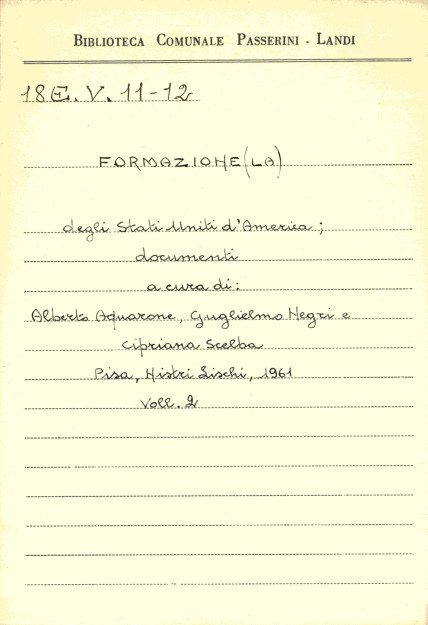 BIBLIOTECA COMUNALE PASSERINI - LANDI
18E.V. 11-12
FORMAZIONE (LA)
degli Stati Uniti d'America;
documenti
a cura di:
Alberto Aquarone, Guglielmo Negri e
Cipriana Scelba
Pisa, Nistri Lischi, 1961
Voll. 2